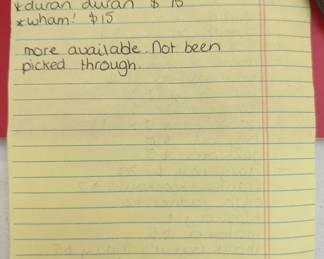 *duran duran $ 15
*wham! $15
more available. Not been
picked through.